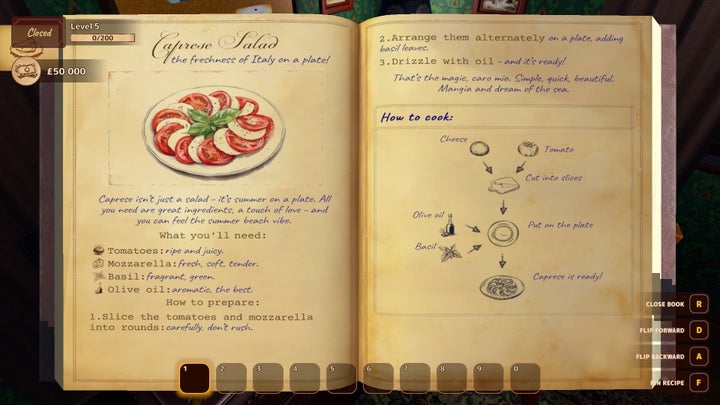 Closed
Level 5
0/200
£50 000
Caprese Salad
the freshness of Italy on a plate!
Caprese isn't just a salad – it's summer on a plate. All
you need are great ingredients, a touch of love – and
you can feel the summer beach vibe.
What you'll need:
Tomatoes: ripe and juicy.
Mozzarella: fresh, soft, tender.
Basil: fragrant, green.
Olive oil: aromatic, the best.
How to prepare:
1.Slice the tomatoes and mozzarella
into rounds: carefully, don't rush.
2.Arrange them alternately on a plate, adding
basil leaves.
3.Drizzle with oil – and it's ready!
That's the magic, caro mio. Simple, quick, beautiful.
Mangia and dream of the sea.
How to cook:
Cheese
Tomato
Cut into slices
Olive oil
Put on the plate
Basil
Caprese is ready!
CLOSE BOOK R
FLIP FORWARD D
FLIP BACKWARD A
PIN RECIPE F
1 2 3 4 5 6 7 8 9 0